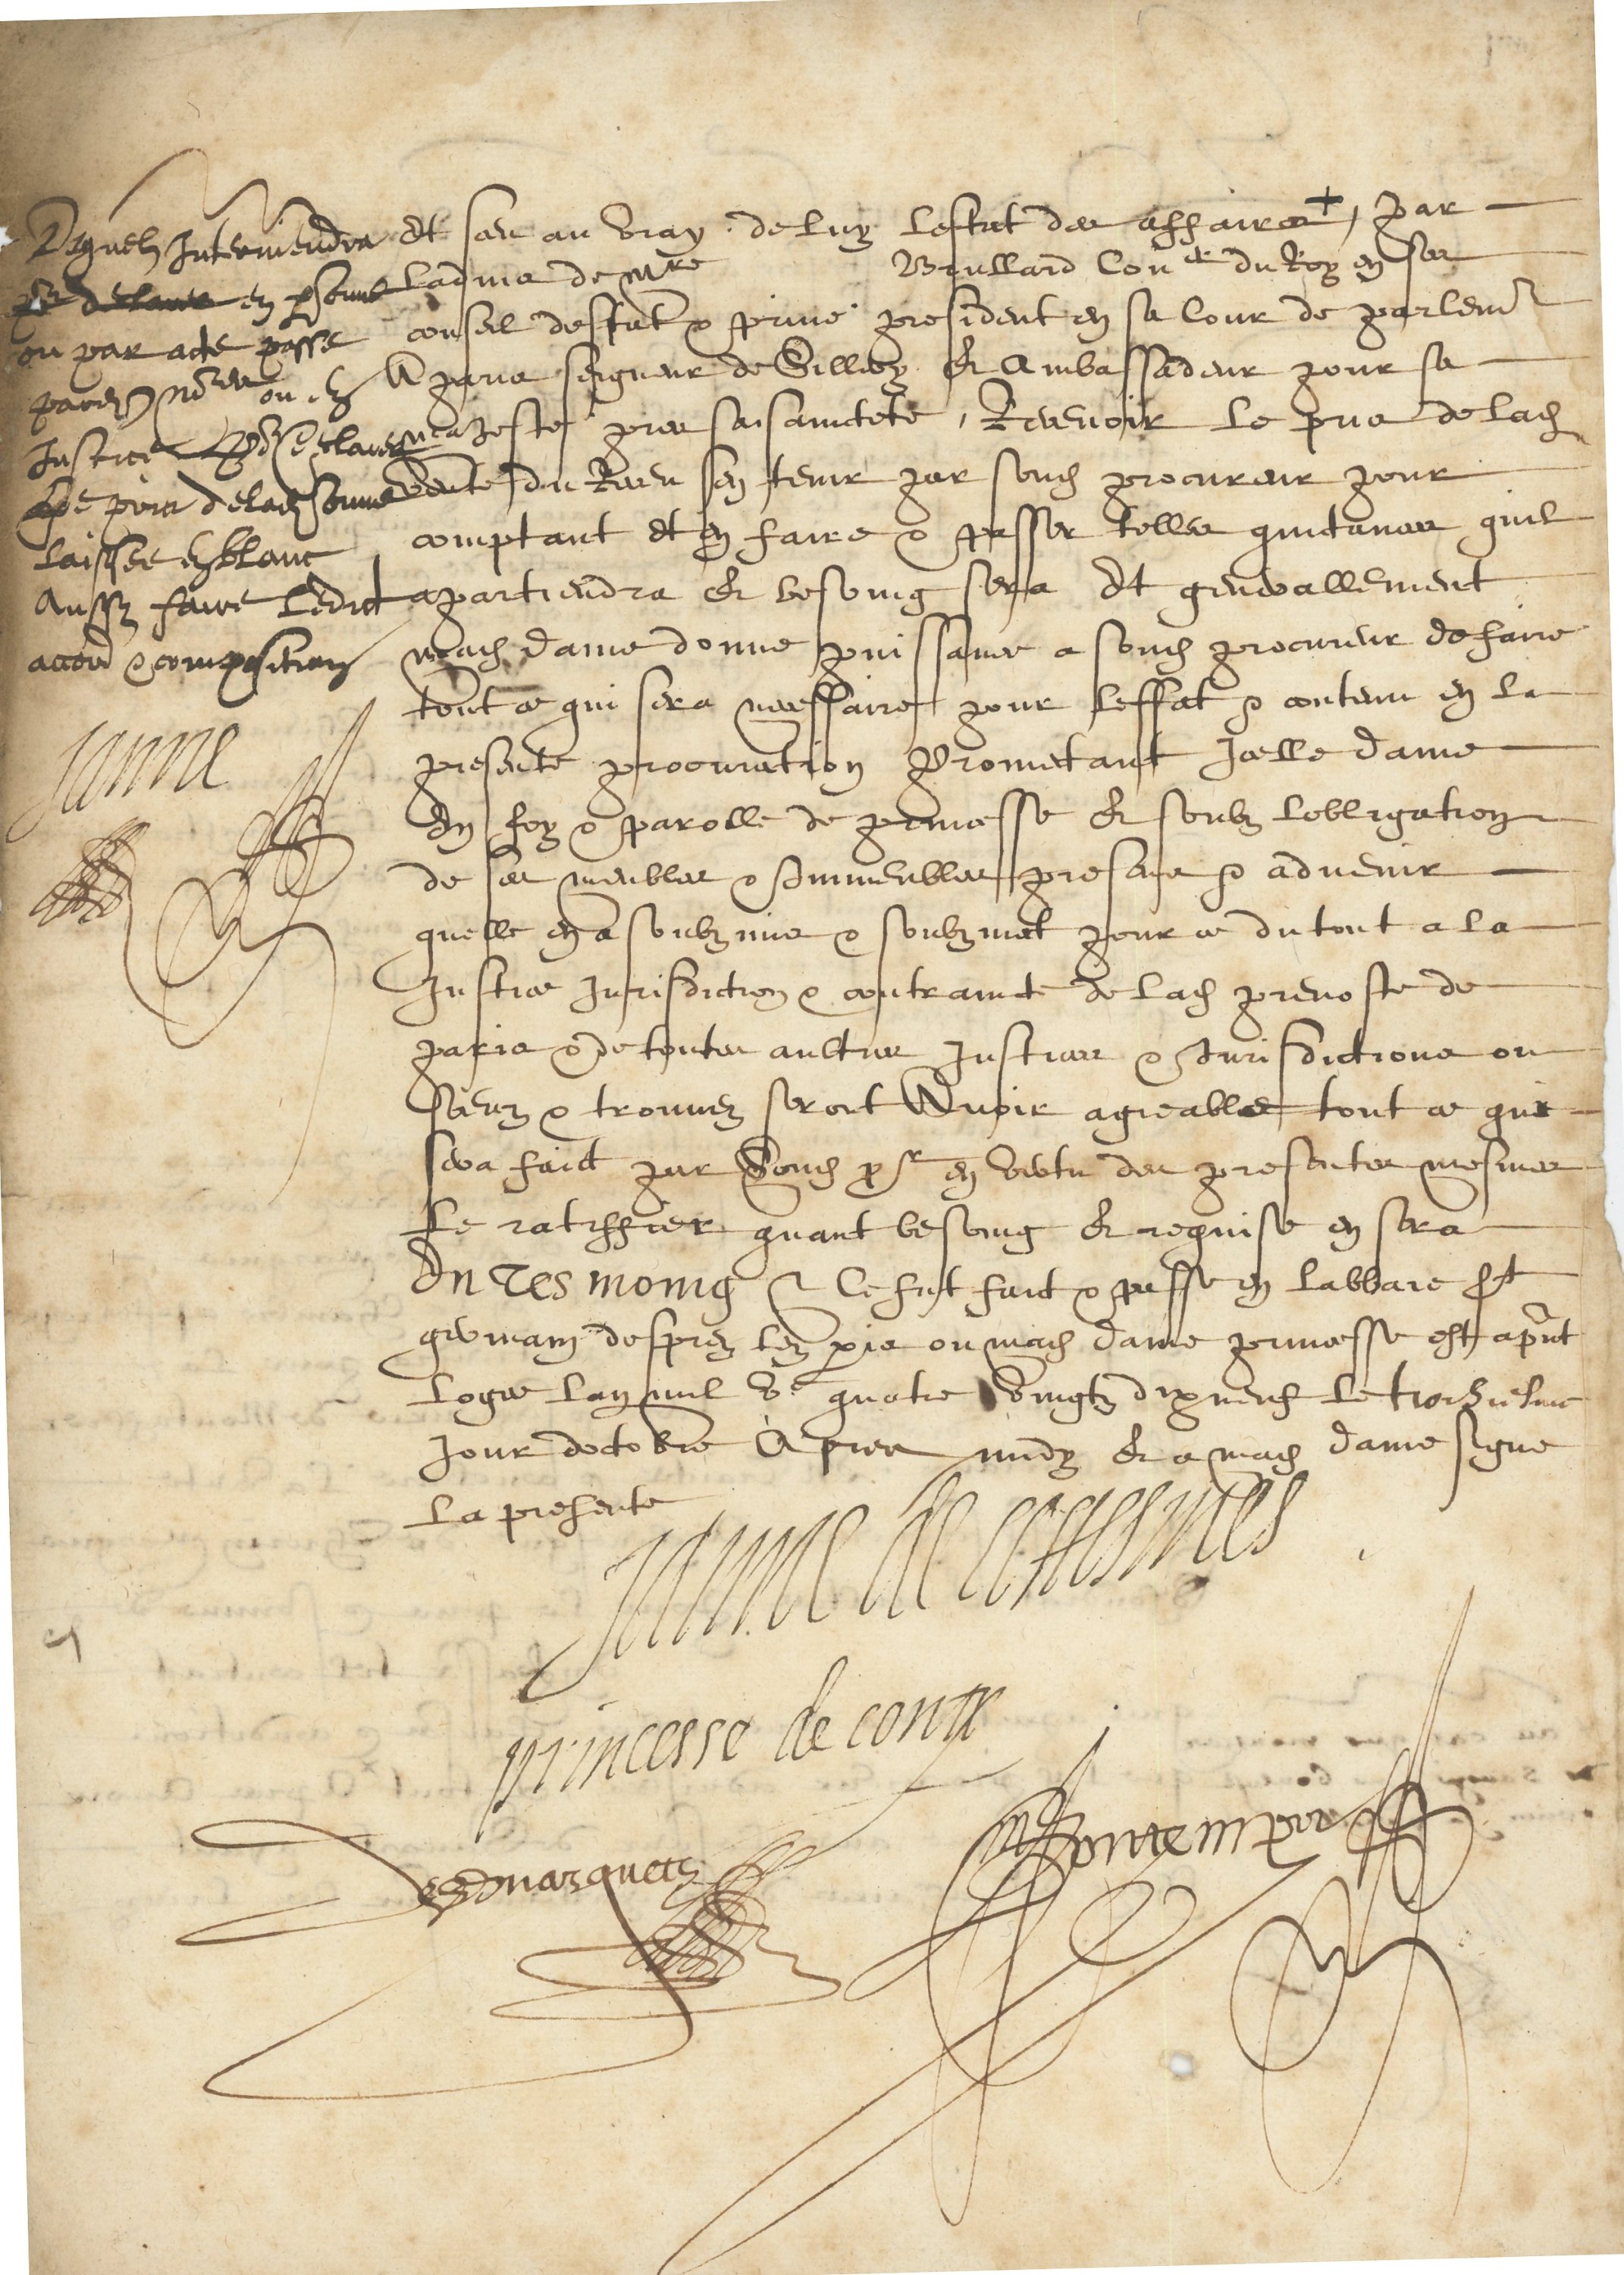 Lequel Interviendra
en p[er]sonne
ou par acte passé
pard[evant] no[tai]res ou en
Justice
laisser en blanc
Aussy faire ledict
accord & composition
Janne
Et scav au vray de luy lestat des affaires + par
ladvis de Mre Brullard Con[seill]er du Roy en ses
conseil destat & privé president en sa Cour de parlem[en]t
A paris seigneur de Sillery & Ambassadeur pour sa
Majesté pres sa sainctete, Recevoir le prix de lad[ite]
vente du Receu sen tenir par sond[it] procureur pour
comptant et en faire & passer telles quictances quil
apartiendra & besoing sera Et generallement
mad[ite] dame donne puissance a sond[it] procureur de faire
tout ce qui sera necessaire pour leffect & contenu en la
presente procuration Prometant Icelle dame
En foy & parolle de princesse & soubz lobligation
de ses meubles & Immeubles presens & advenir
quelle en a soubzmis & soubzmet pour ce du tout a la
Justice Jurisdiction & contraincte de lad[ite] prevosté de
paris & de toutes aultres Justices & Jurisdictions ou
sceuz & trouvez seront Avoir agreable tout ce qui
sera faict par sond[it] p[rocureu]r en vertu des presentes mesmes
le ratiffier quant besoing & requise en sera
En Tesmoing Ce fut faict & passé en labbaie S[ain]t
germain desprez lez p[ar]is ou mad[ite] dame princesse est a p[rese]nt
logee lan mil Vc quatre vingtz dix neuf le troisiesme
Jour doctobre Apres midy & a mad[ite] dame signé
la presente
Janne de coesmes
princesse de conty
Desmarquetz